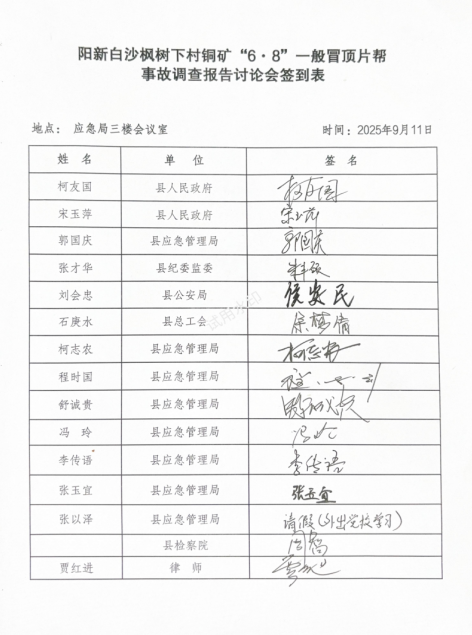 阳新白沙枫树下村铜矿“6·8”一般冒顶片帮
事故调查报告讨论会签到表
地点： 应急局三楼会议室 时间：2025年9月11日
姓 名 单 位 签 名
柯友国 县人民政府 柯友国
宋玉萍 县人民政府 宋玉萍
郭国庆 县应急管理局 郭国庆
张才华 县纪委监委
刘会忠 县公安局 侯安民
石庚水 县总工会
柯志农 县应急管理局 柯志农
程时国 县应急管理局
舒诚贵 县应急管理局
冯 玲 县应急管理局 冯玲
李传语 县应急管理局 李传语
张玉宜 县应急管理局 张玉宜
张以泽 县应急管理局 请假（外出党校学习）
县检察院
贾红进 律 师